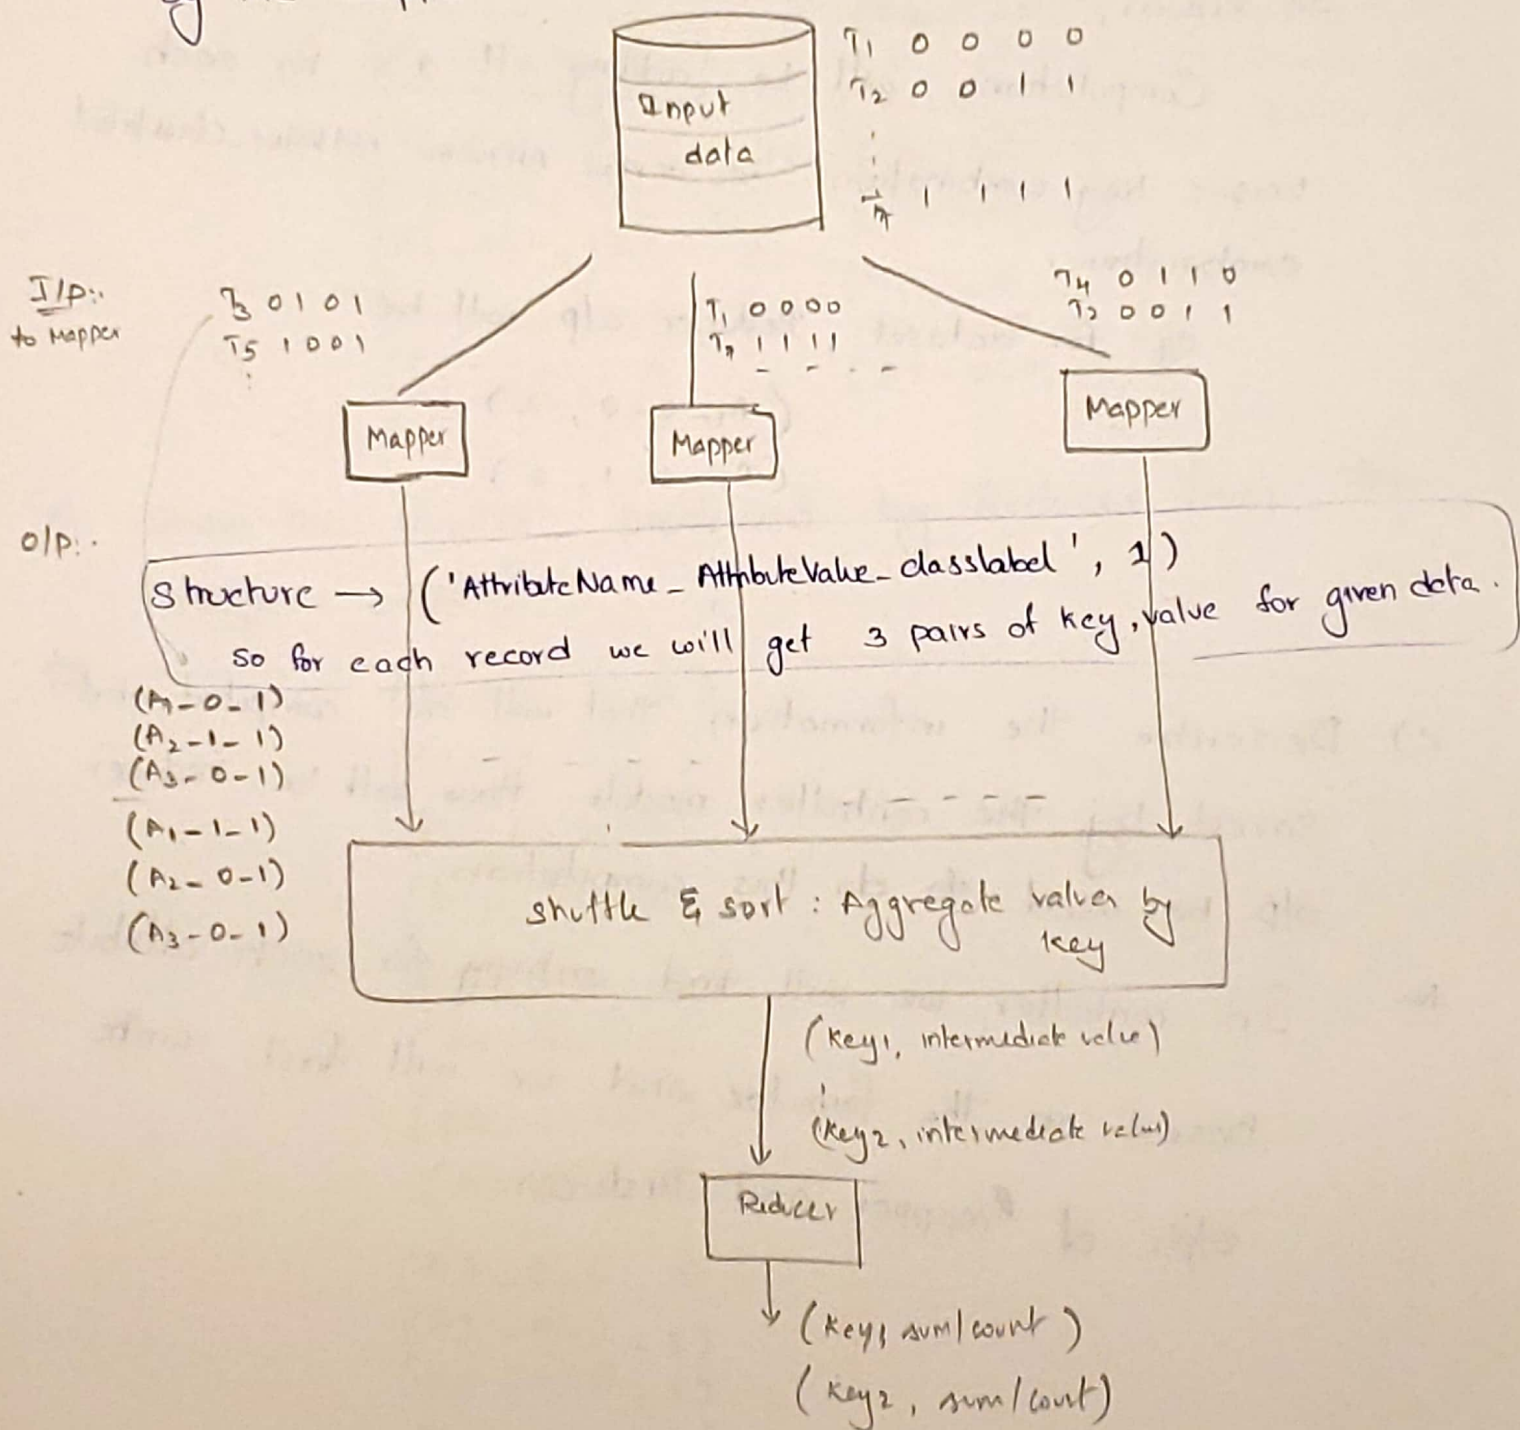 by
T1 0 0 0 0
T2 0 0 1 1
Input
data
T7 1 1 1 1
I/P:
to Mapper
T3 0 1 0 1
T5 1 0 0 1
T1 0 0 0 0
T7 1 1 1 1
T4 0 1 1 0
T2 0 0 1 1
Mapper
Mapper
Mapper
O/P:
Structure → ('AttributeName_AttributeValue_classlabel', 1)
so for each record we will get 3 pairs of key, value for given data.
(A1-0-1)
(A2-1-1)
(A3-0-1)
(A1-1-1)
(A2-0-1)
(A3-0-1)
shuttle & sort : Aggregate values by
key
(key1, intermediate value)
(key2, intermediate value)
Reducer
(key1 sum/count)
(key2, sum/count)